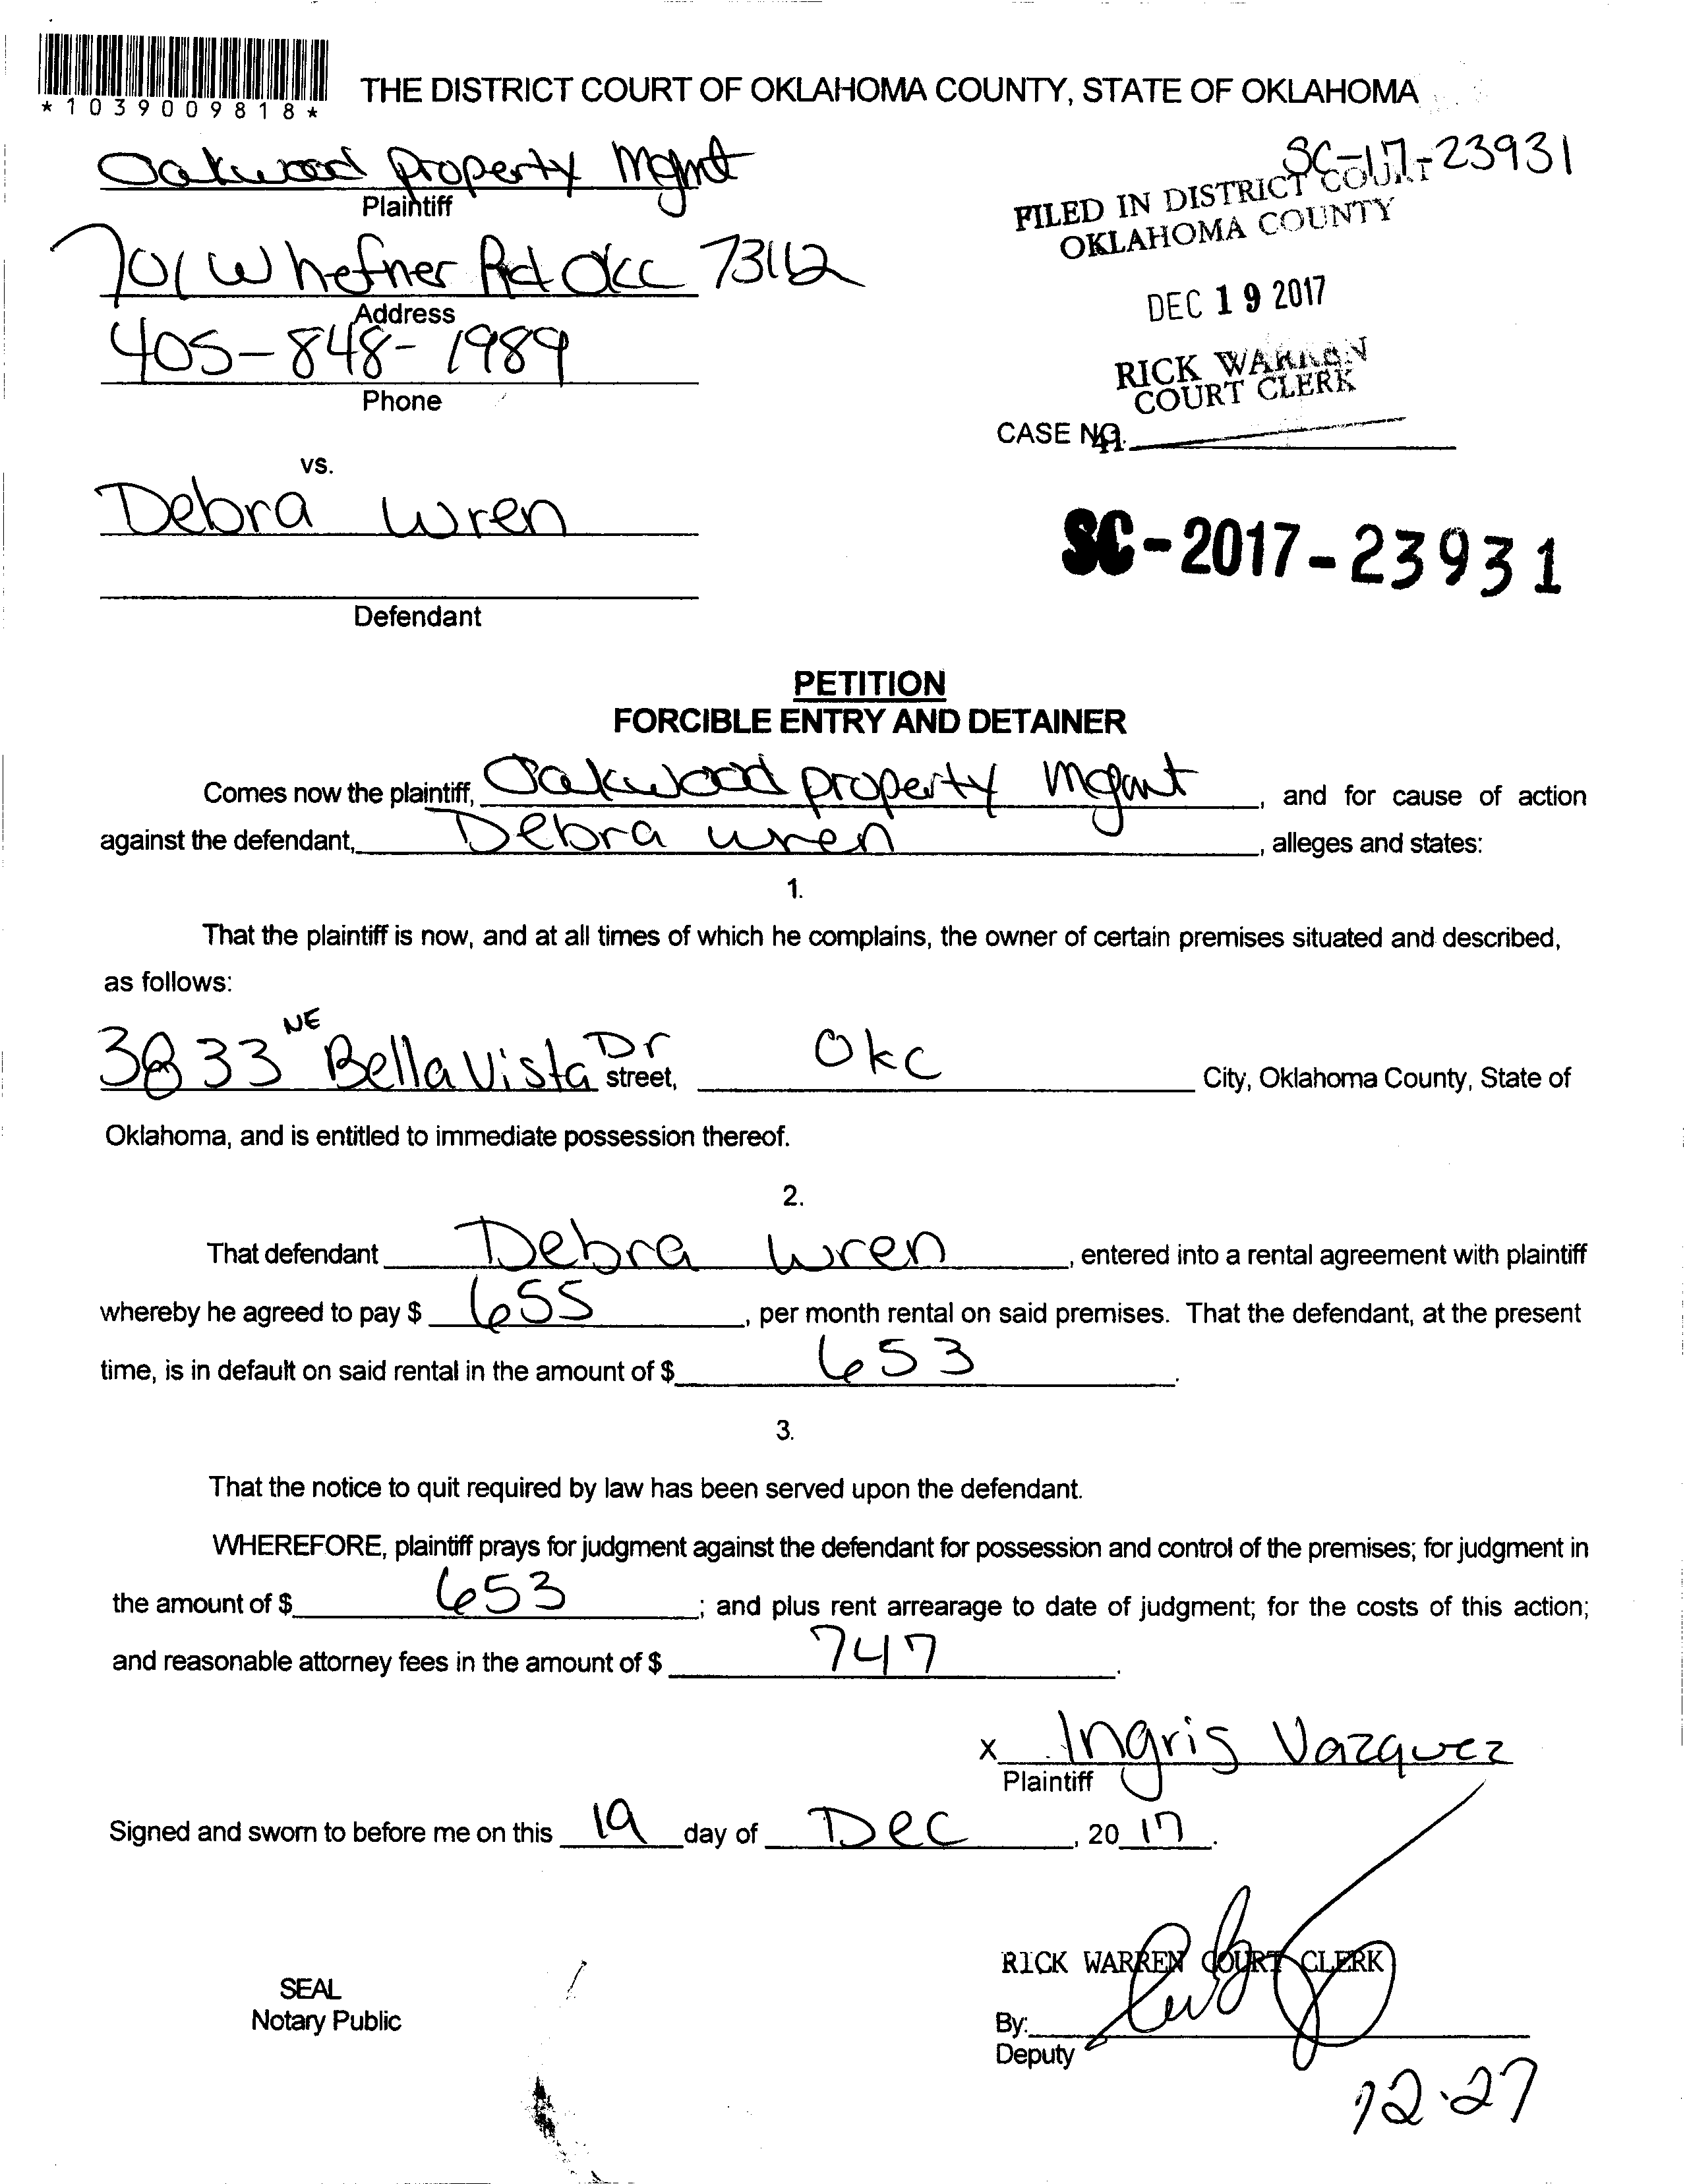 *1039009818*
THE DISTRICT COURT OF OKLAHOMA COUNTY, STATE OF OKLAHOMA
Oakwood property Mgmt
Plaintiff
SC-17-23931
FILED IN DISTRICT COURT
OKLAHOMA COUNTY
701 W hefner Rd OKC 73112
Address
DEC 19 2017
405-848-1989
Phone
RICK WARREN
COURT CLERK
CASE NO.
41
vs.
Debra Wren
Defendant
SC-2017-23931
PETITION
FORCIBLE ENTRY AND DETAINER
Comes now the plaintiff, Oakwood property Mgmt, and for cause of action
against the defendant, Debra Wren, alleges and states:
1.
That the plaintiff is now, and at all times of which he complains, the owner of certain premises situated and described,
as follows:
3833 NE Bella Vista Dr street, Okc City, Oklahoma County, State of
Oklahoma, and is entitled to immediate possession thereof.
2.
That defendant Debra Wren, entered into a rental agreement with plaintiff
whereby he agreed to pay $ 655, per month rental on said premises. That the defendant, at the present
time, is in default on said rental in the amount of $ 653.
3.
That the notice to quit required by law has been served upon the defendant.
WHEREFORE, plaintiff prays for judgment against the defendant for possession and control of the premises; for judgment in
the amount of $ 653; and plus rent arrearage to date of judgment; for the costs of this action;
and reasonable attorney fees in the amount of $ 747.
x Ingris Vazquez
Plaintiff
Signed and sworn to before me on this 19 day of Dec, 2017.
RICK WARREN COURT CLERK
SEAL
Notary Public
By:
Deputy
12-27